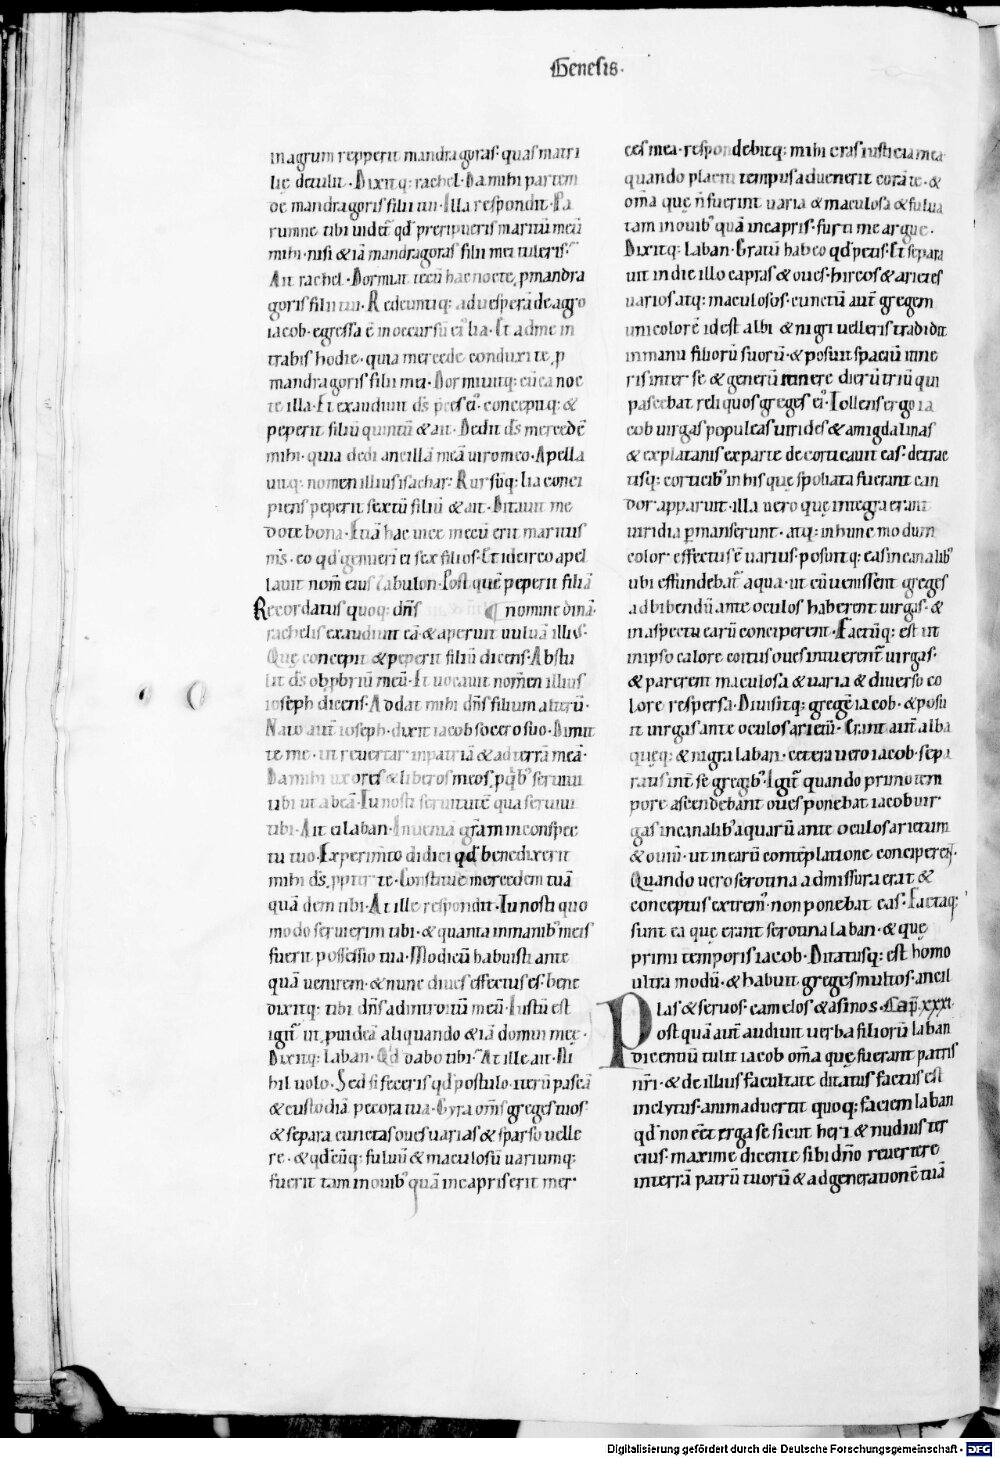 Genesis.
in agrum repperit mandragoras. quas matri
lię detulit. Dixitq: rachel. Da mihi partem
de mandragoris filii tui. Illa respondit. Pa
rumne tibi uidet᷑ qd̄ preripueris maritū meū
mihi. nisi & iā mandragoras filii mei tuleris.
Ait rachel. Dormiat tecū hac nocte, p mandra
goris filii tui. Redeuntiq: ad uesperā de agro
iacob. egressa ē in occursū ei᷒ lia. Et ad me in
trabis hodie. quia mercede conduxi te, p
mandragoris filii mei. Dormiuitq: cū ea noc
te illa. Et exaudiuit ds̄ p̄ces ei᷒. concepitq: &
peperit filiū quintū & ait. Dedit ds̄ mercedē
mihi. quia dedi ancillā meā uiro meo. Apella
uitq: nomen illius isachar. Rursūq: lia conci
piens peperit sextū filiū & ait. Ditauit me
dote bona. Etiā hac uice mecū erit maritus
ms̄. eo qd̄ genueri ei sex filios. Et idcirco apel
lauit nom̄ eius zabulon. Post quē peperit filiā
Recordatus quoq: dn̄s ¶ nomine dinā.
rachelis exaudiuit eā & aperuit uuluā illi᷒.
Quę concepit & peperit filiū dicens. Abstu
lit ds̄ obp̄briū meū. Et uocauit nomen illius
ioseph dicens. Addat mihi dn̄s filium alterū.
Nato aut̄ ioseph. dixit iacob socero suo. Dimit
te me. ut reuertar in patriā & ad terrā meā.
Da mihi uxores & liberos meos, p q̄b᷒ seruiui
tibi ut abeā. Tu nosti seruitutē qua seruiui
tibi. Ait ei laban. Inueniā gr̄am in conspec
tu tuo. Experim̄to didici qd̄ benedixerit
mihi ds̄, ppter te. Constitue mercedem tuā
quā dem tibi. At ille respondit. Tu nosti quo
modo seruierim tibi. & quanta in manib᷒ meis
fuerit possessio tua. Modicū habuisti ante
quā uenirem. & nunc diues effectus es. bene
dixitq: tibi dn̄s ad introitū meū. Iustū est
igit᷑ ut, puideā aliquando & iā domui meę.
Dixitq: laban. Qd̄ dabo tibi. At ille ait. Ni
hil uolo. Sed si feceris qd̄ postulo. iterū pascā
& custodiā pecora tua. Gyra om̄s greges tuos
& separa cunctas oues uarias & sparso uelle
re. & qd̄cūq: fuluū & maculosū uariumq:
fuerit tam in ouib᷒ quā in capris erit mer.
ces mea. respondebitq: mihi cras iusticia mea
quando placiti tempus aduenerit corā te. &
om̄a quę n̄ fuerint uaria & maculosa & fulua
tam in ouib᷒ quā in capris. furti me argue.
Dixitq: laban. Gratū habeo qd̄ petis. Et separa
uit in die illo capras & oues. hircos & arietes
uarios atq: maculosos. cunctū aut̄ gregem
unicolorē id est albi & nigri uelleris tradidit
in manu filiorū suorū. & posuit spaciū itine
ris inter se & generū itinere dierū triū qui
pascebat reliquos greges ei᷒. Tollens ergo ia
cob uirgas populeas uirides & amigdalinas
& ex platanis ex parte decorticauit eas. detrac
tisq: corticib᷒ in his quę spoliata fuerant can
dor apparuit. illa uero quę integra erant
uiridia p̱manserunt. atq: in hunc modum
color effectus ē uarius. posuitq: eas in canalib᷒
ubi effundebat᷑ aqua. ut cū uenissent greges
ad bibendū ante oculos haberent uirgas. &
in aspectu earū conciperent. Factūq: est ut
in ipso calore coitus oues intuerent᷑ uirgas.
& parerent maculosa & uaria & diuerso co
lore respersa. Diuisitq: gregē iacob. & posu
it uirgas ante oculos arietū. Erant aut̄ alba
queq: & nigra laban. cetera uero iacob. sepa
ratis int̄ se gregib᷒. Igit᷑ quando primo tem
pore ascendebant oues ponebat iacob uir
gas in canalib᷒ aquarū ante oculos arietum
& ouiū. ut in earū contēplatione conciperet.
Quando uero serotina admissura erat &
conceptus extrem᷒. non ponebat eas. Factaq:
sunt ea quę erant serotina laban. & quę
primi temporis iacob. Ditatusq: est homo
ultra modū. & habuit greges multos. ancil
las & seruos. camelos & asinos. Cap̄. xxxi.
Post quā aut̄ audiuit uerba filiorū laban
dicentiū tulit iacob om̄a quę fuerant patris
nr̄i. & de illius facultate ditatus factus est
inclytus. animaduertit quoq: faciem laban
qd̄ non eēt erga se sicut heri & nudius ter
cius. maxime dicente sibi dn̄o reuertere
in terrā patrū tuorū & ad generationē tuā
Digitalisierung gefördert durch die Deutsche Forschungsgemeinschaft - DFG